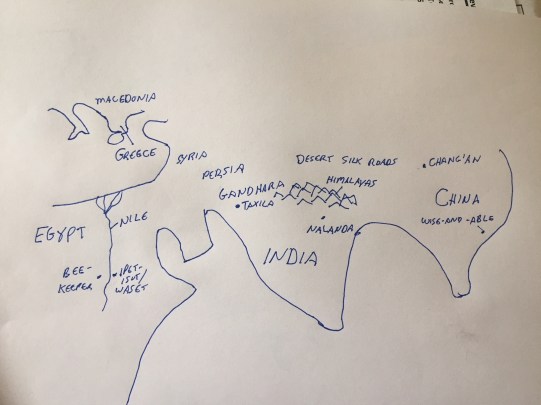 MACEDONIA
GREECE
SYRIA
PERSIA
DESERT SILK ROADS
CHANG'AN
HIMALAYAS
GANDHARA
TAXILA
CHINA
WISE-AND-ABLE
NILE
EGYPT
NALANDA
INDIA
BEE-
KEEPER
IPET-
ISUT/
WASET